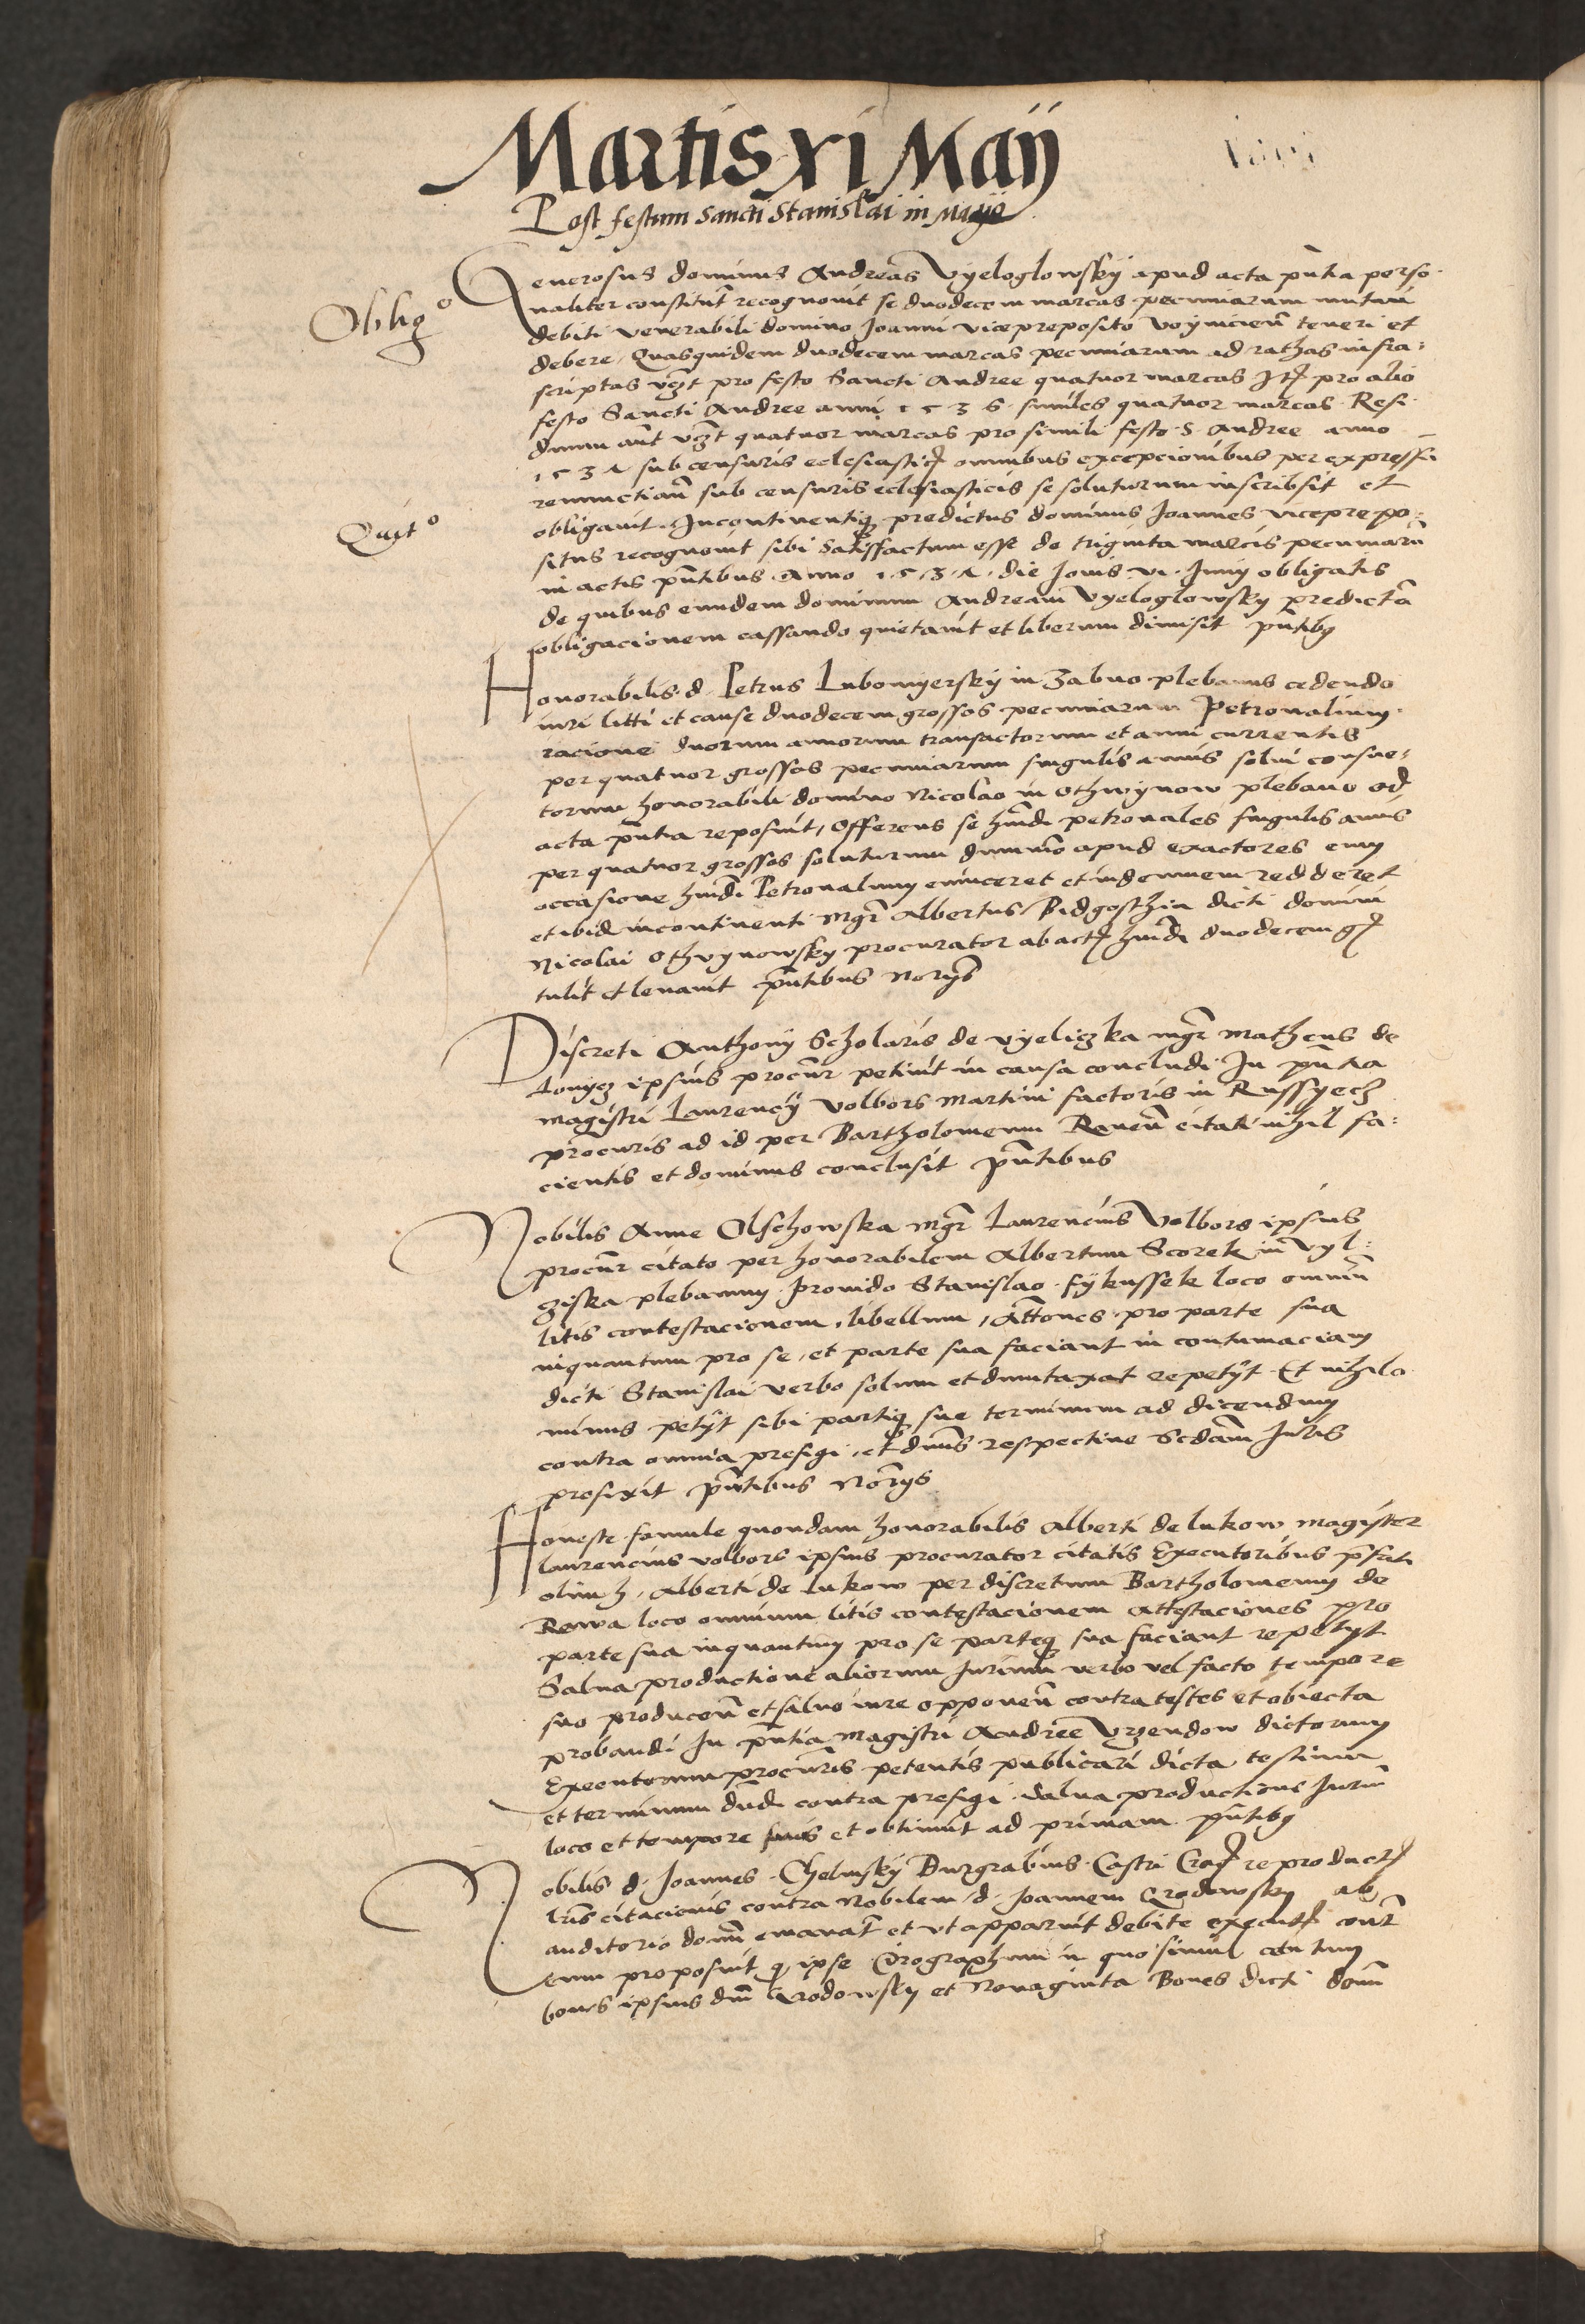 Martis xi Maij
Post festum Sancti Stanislai in Mayo
Oblig°
Generosus dominus Andreas Vyeloglowskÿ apud acta pn̄tia perso-
naliter constitut̄ recognouit se duodecem marcas pecuniarum mutui
debiti venerabili domino Joanni vicepreposito voyniciens̄ teneri et
debere, Quasquidem duodecem marcas pecuniarum ad rathas infra:
scriptas vꝫt pro festo Sancti Andree quatuor marcas Itꝭ pro alio
festo Sancti Andree anni 1536 similes quatuor marcas. Resi-
duum aūt vꝫt quatuor marcas pro simili festo S. Andree anno
sub censuris eclesiasticꝭ omnibus excepcionibus per expressū
renunctian̄ sub censuris eclesiasticis se soluturum inscribsit et
Quit°
obligauit. Incontinentiqꝫ predictus dominus Joannes viceprepo-
situs recognouit sibi satisfactum esse de triginta marcis pecuniarū
in actis pn̄tibus Anno die Jouis vi Junij obligatis
de quibus eundem dominum Andream Vyeloglowsky predictā
obligacionem cassando quietauit et liberum dimisit pn̄tibꝫ
Honorabilis d. Petrus Lubomyerskÿ in Zabno plebanus cedendo
iuri litti et cause duodecem grossos pecuniarum Petronalium
racione duorum annorum transactorum et anni currentis
per quatuor grossos pecuniarum singulis annis solui consue:
torum honorabili domino Nicolao in Othwynow plebano ad
acta pn̄tia reposuit, Offerens se hm̄di petronales singulis annis
per quatuor grossos soluturum dummō apud exactores eum
occasione hm̄di Petronalium euinceret et indemnem redderet
et ibidē incontinenti Mgr̄ Albertus Bidgosthia dicti domini
Nicolai Othvynowsky procurator ab actꝭ hm̄di duodecem gꝭ
tulit et leuauit pn̄tibus Norijs
Discreti Anthonij Scholaris de vyeliczka mgr̄ Matheus de
Lonycz ipsius procūr petiuit in causa concludi In pn̄tia
magistri Laurencÿ Volbors Martini factoris in Russyech
procuris ad id per Bartholomeum Rauen̄ citati nihil fa:
cientis et dominus conclusit pn̄tibus
Nobilis Anne Olschowska Mgr̄ Laurencius Volbors ipsius
procūr citato per honorabilem Albertum Scorek in Vyl:
ziska plebanum Prouido Stanislao Fÿkussek loco omniū
litis contestacionem, libellum, Attones pro parte sua
inquantum pro se, et parte sua faciant in contumaciam
dicti Stanislai verbo solum et dumtaxat repetÿt. Et nihilo
minus petÿt sibi partiqꝫ sue terminum ad dicendum
contra omnia prefigi, et dn̄us respectiue Scdām Juris
prefixit pn̄tibus Norijs
Honeste famule quondam honorabilis Alberti de Lukow magister
Laurencius volbors ipsius procurator citatis Executoribus pr̄fati
olim h. Alberti de Lukow per discretum Bartholomeum de
Rawa loco omnium litis contestacionem Attestaciones pro
parte sua inquantum pro se parteqꝫ sua faciant repetÿt
Salua productione aliorum Jurium verbo vel facto tempore
suo producen̄ et saluo iure opponen̄ contra testes et obiecta
probandi In pn̄tia Magistri Andree Vrzendow dictorum
Executorum procuris petentis publicari dicta testium
et terminum dn̄di contra prefigi. Salua productione Juriū
loco et tempore suis et obtinuit ad primam pn̄tibꝫ
Nobilis d. Joannes Chelmskÿ Burgrabius Castri Cracꝭ reproductꝭ
lr̄is citacionis contra Nobilem d. Joannem Grodowsky ab
auditorio domī emanat̄ et vt apparuit debite executꝭ cont̄
eum proposuit qꝫ ipse Cirographum in quo simul centum
boues ipsius dn̄i Grodowsky et Nonaginta Boues dicti domī